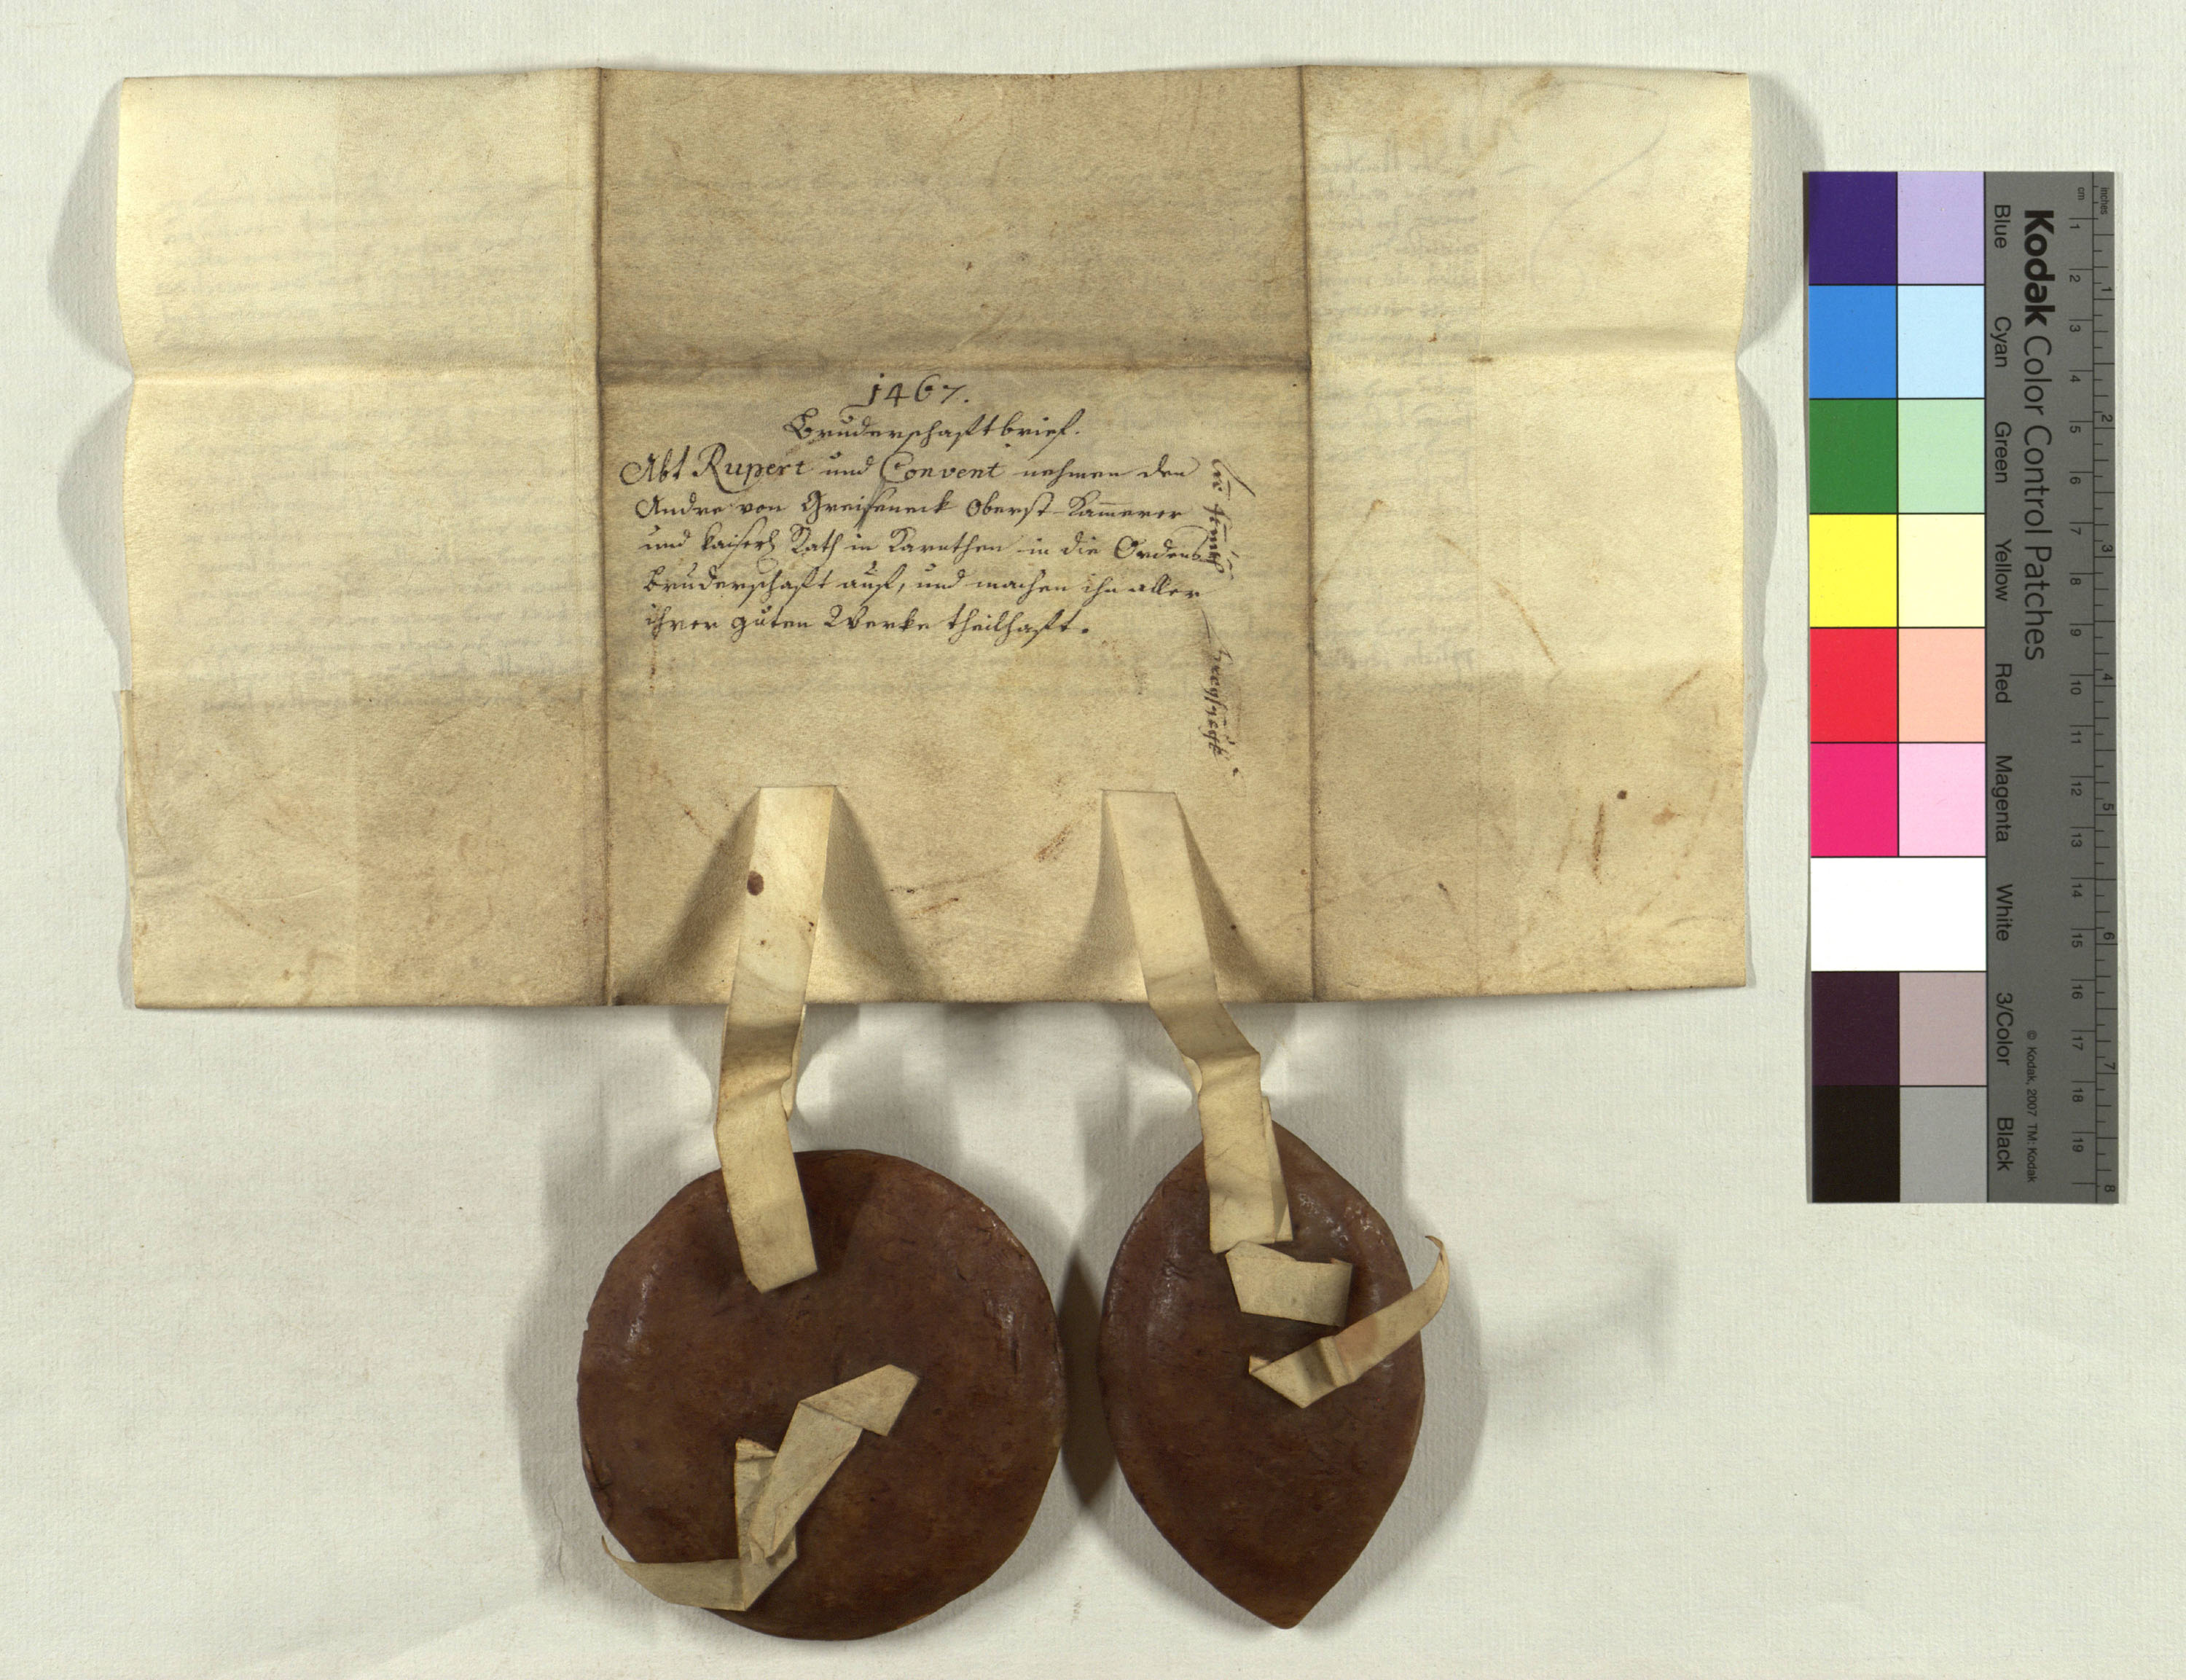 1467.
Bruderschaftbrief.
Abt Rupert und Convent nehmen den
Andre von Greiseneck Oberst-Kam̄erer
und kaiserl Rath in Karnthen in die Ordens
Bruderschaft auf, und machen ihn aller
ihrer guten Werke theilhaft.
Kodak Color Control Patches
Blue Cyan Green Yellow Red Magenta White 3/Color Black
© Kodak, 2007 TM: Kodak
cm 1 2 3 4 5 6 7 8 9 10 11 12 13 14 15 16 17 18 19
inches 1 2 3 4 5 6 7 8